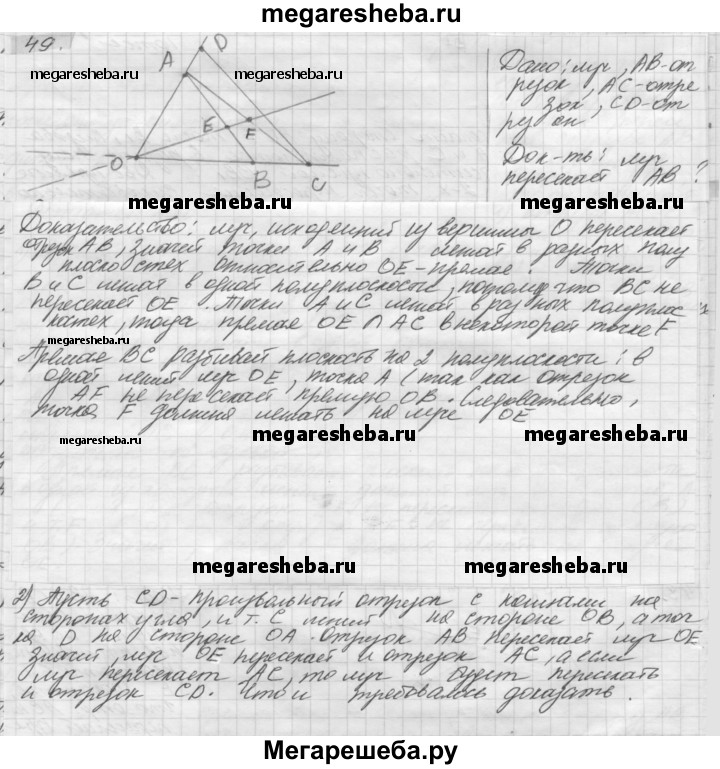 megaresheba.ru
49.
A
D
megaresheba.ru
megaresheba.ru
E
F
O
B
C
Дано: луч, AB-от
резок, AC-отре
зок, CD-от
резок
Док-ть: луч
пересекает AB?
megaresheba.ru
megaresheba.ru
Доказательство: луч, исходящий из вершины O пересекает
отрезок AB, значит точки A и B лежат в разных полу
плоскостях относительно OE-прямае. Точки
B и C лежат в одной полуплоскости, потому что BC не
пересекает OE. Точки A и C лежат в разных полуплос
костях, тогда прямае OE ∩ AC в некоторой точке F
Прямае BC разбивай плоскость на 2 полуплоскости: в
одной лежит луч OE, точка A (так как отрезок
AF не пересекает прямую OB. Следовательно,
точка F должна лежать на луче OE
megaresheba.ru
megaresheba.ru
megaresheba.ru
megaresheba.ru
megaresheba.ru
2) Пусть CD-произвольный отрезок с концами на
сторонах угла, и т. C лежит на стороне OB, а точ
ка D на стороне OA. Отрезок AB пересекает луч OE
значит луч OE пересекает и отрезок AC, а если
луч пересекает AC, то луч будет пересекать
и отрезок CD. Что и требовалось доказать.
Мегарешеба.ру